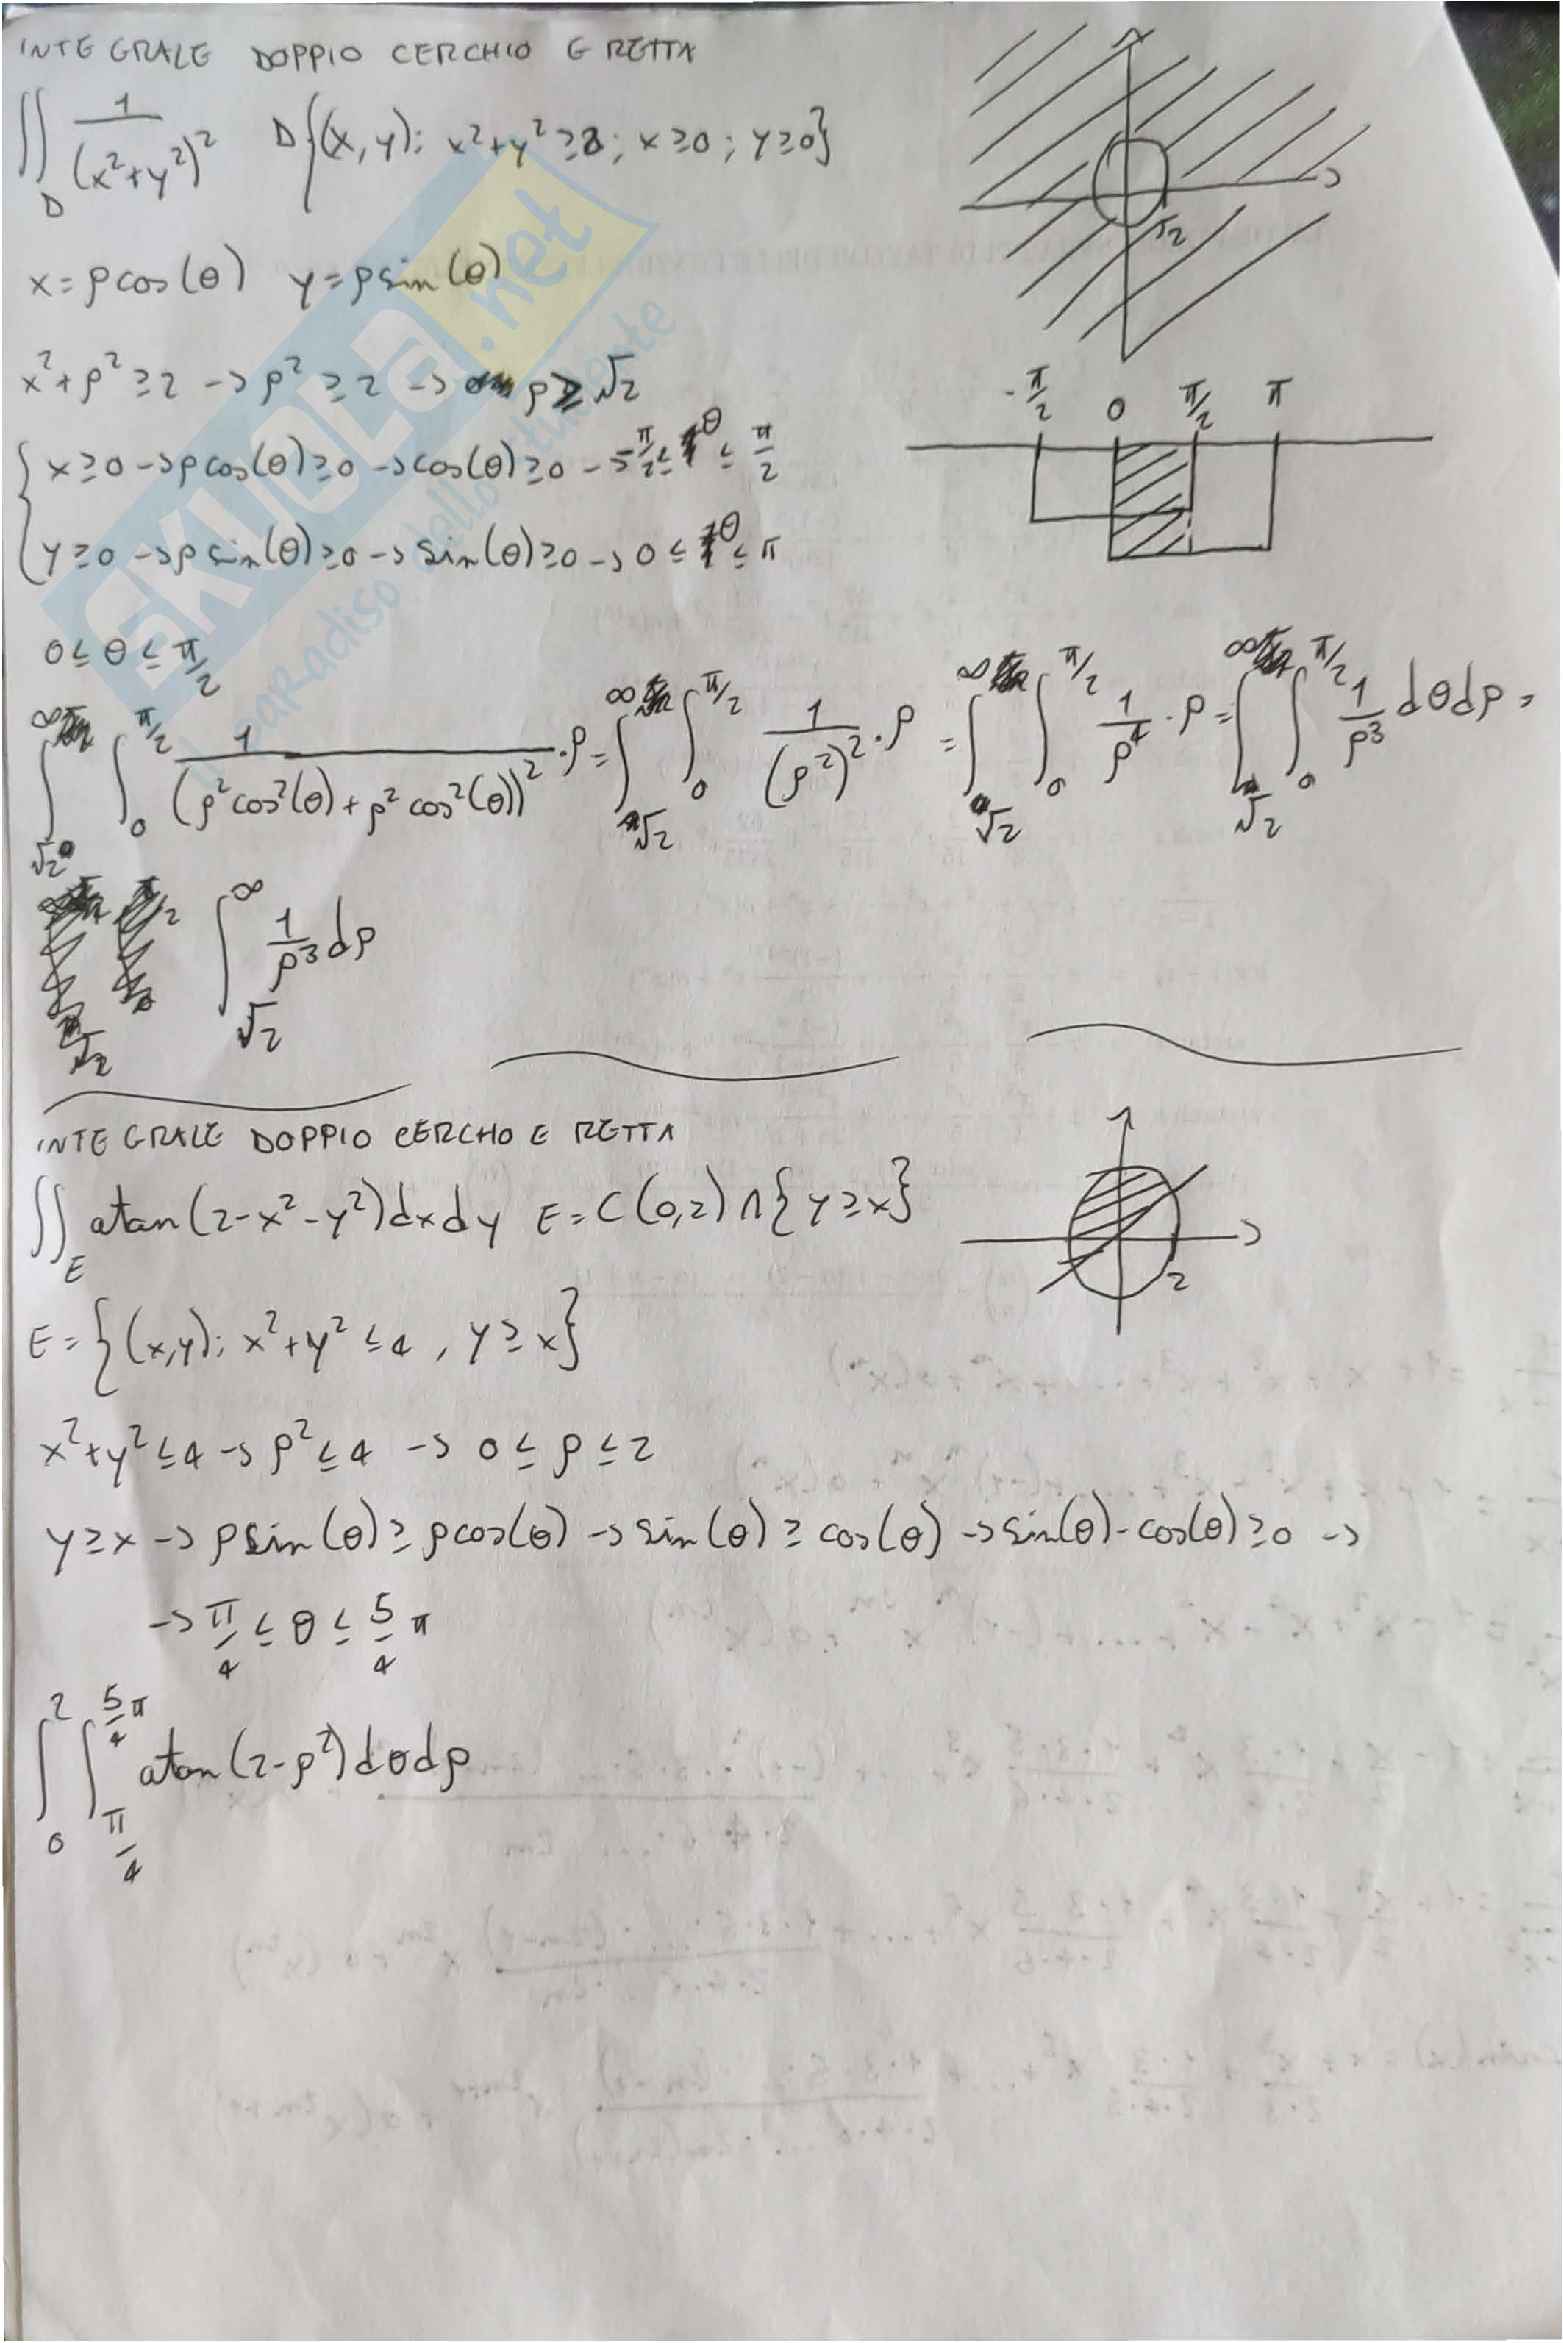 INTEGRALE DOPPIO CERCHIO E RETTA
∬_D 1/(x²+y²)² D{(x,y): x²+y²≥2; x≥0; y≥0}
√2
x=ρcos(θ) y=ρsin(θ)
x²+ρ²≥2 -> ρ²≥2 -> ρ≥√2
-π/2 0 π/2 π
x≥0 -> ρcos(θ)≥0 -> cos(θ)≥0 -> -π/2≤θ≤π/2
y≥0 -> ρsin(θ)≥0 -> sin(θ)≥0 -> 0≤θ≤π
0≤θ≤π/2
∫_√2^∞ ∫_0^π/2 1/(ρ²cos²(θ)+ρ²cos²(θ))² ·ρ = ∫_√2^∞ ∫_0^π/2 1/(ρ²)² ·ρ = ∫_√2^∞ ∫_0^π/2 1/ρ⁴ ·ρ = ∫_√2^∞ ∫_0^π/2 1/ρ³ dθdρ =
∫_√2^∞ 1/ρ³ dρ
INTEGRALE DOPPIO CERCHO E RETTA
∬_E atan(2-x²-y²)dxdy E=C(0,2)∩{y≥x}
2
E={(x,y): x²+y²≤4, y≥x}
x²+y²≤4 -> ρ²≤4 -> 0≤ρ≤2
y≥x -> ρsin(θ)≥ρcos(θ) -> sin(θ)≥cos(θ) -> sin(θ)-cos(θ)≥0 ->
-> π/4≤θ≤5/4π
∫_0^2 ∫_π/4^5/4π atan(2-ρ²)dθdρ
SKUOLA.net